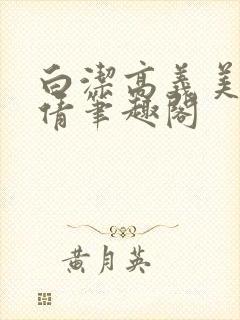 白潔高義美
倩筆趣閣
黃月英